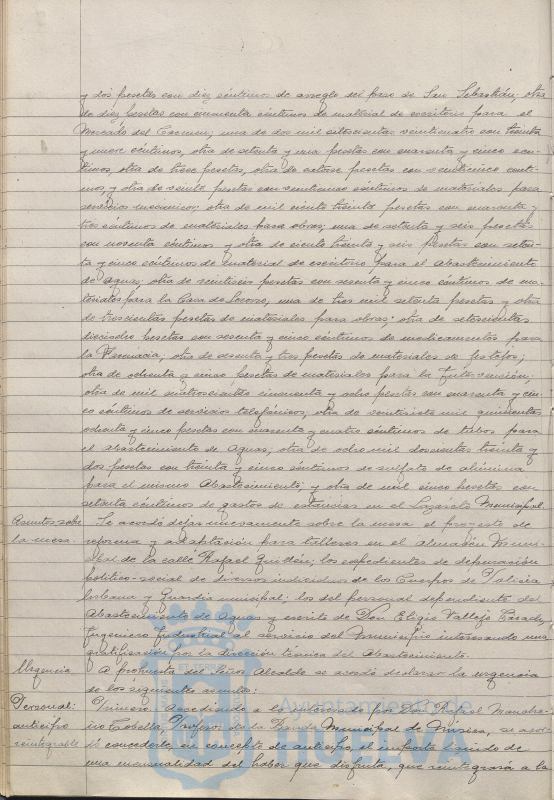 y dos pesetas con diez céntimos de arreglo del paso de San Sebastián; otra
de diez pesetas con cincuenta céntimos de material de escritorio para el
Mercado del Carmen; una de dos mil setecientas veinticuatro con treinta
y nueve céntimos, otra de setenta y una pesetas con cuarenta y cinco cén-
timos, otra de trece pesetas, otra de catorce pesetas con veinticinco cénti-
mos y otra de veinte pesetas con veinticinco céntimos de materiales para
servicios mecánicos; otra de mil ciento treinta pesetas con cuarenta y
tres céntimos de materiales para obras; una de setenta y seis pesetas
con noventa céntimos y otra de ciento treinta y seis pesetas con seten-
ta y cinco céntimos de material de escritorio para el Abastecimiento
de aguas; otra de veintiseis pesetas con sesenta y cinco céntimos de ma-
teriales para la Casa de Socorro; una de tres mil setenta pesetas y otra
de trescientas pesetas de materiales para obras; otra de setecientas
dieciocho pesetas con sesenta y cinco céntimos de medicamentos para
la Farmacia; otra de sesenta y tres pesetas de materiales de festejos;
otra de ochenta y cinco pesetas de materiales para la Intervención;
otra de mil cuatrocientas cincuenta y ocho pesetas con cuarenta y cin-
co céntimos de servicios telefónicos; otra de veintisiete mil quinientas
ochenta y cinco pesetas con cuarenta y cuatro céntimos de tubos para
el abastecimiento de aguas; otra de ocho mil doscientas treinta y
dos pesetas con treinta y cinco céntimos de sulfato de alúmina
para el mismo Abastecimiento; y otra de mil cinco pesetas con
setenta céntimos de gastos de estancias en el Lazareto Municipal.
Asuntos sobre Se acordó dejar nuevamente sobre la mesa el proyecto de
la mesa. reforma y adaptación para talleres en el almacén Muni-
cipal de la calle Rafael Guillén; los expedientes de depuración
político-social de diversos individuos de los Cuerpos de Policía
Urbana y Guardia municipal; los del personal dependiente del
Abastecimiento de Aguas y escrito de Don Eligio Vallejo Casado,
Ingeniero Industrial al servicio del Municipio interesando una
gratificación por la dirección técnica del Abastecimiento.
Urgencia A propuesta del Señor Alcalde se acordó declarar la urgencia
de los siguientes asuntos:
Personal: Primero: Accediendo a lo interesado por Don Rafael
anticipo Profesor de la Banda Municipal de Música, se acor-
reintegrable dó concederle, en concepto de anticipo, el importe líquido de
una mensualidad del haber que disfruta, que reintegrará a la
Ayuntamiento de
HUELVA